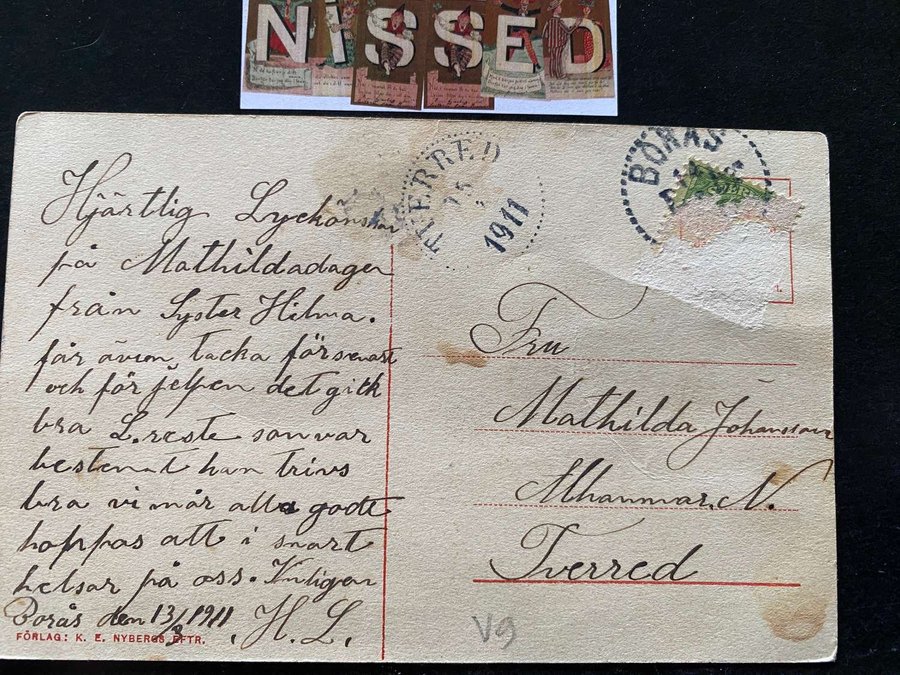 NISSED
Hjärtlig Lyckönskan
på Mathildadagen
från Syster Hilma.
får även tacka för senast
och för jelpen det gick
bra L. reste som var
bestemt han trivs
bra vi mår alla godt
hoppas att i snart
helsar på oss. Vnligen
Borås den 13/3 1911
H. L.
FÖRLAG: K. E. NYBERGS EFTR.
TVERRED
15
1911
BORÅS
Fru
Mathilda Johansson
N.
Tverred
V9